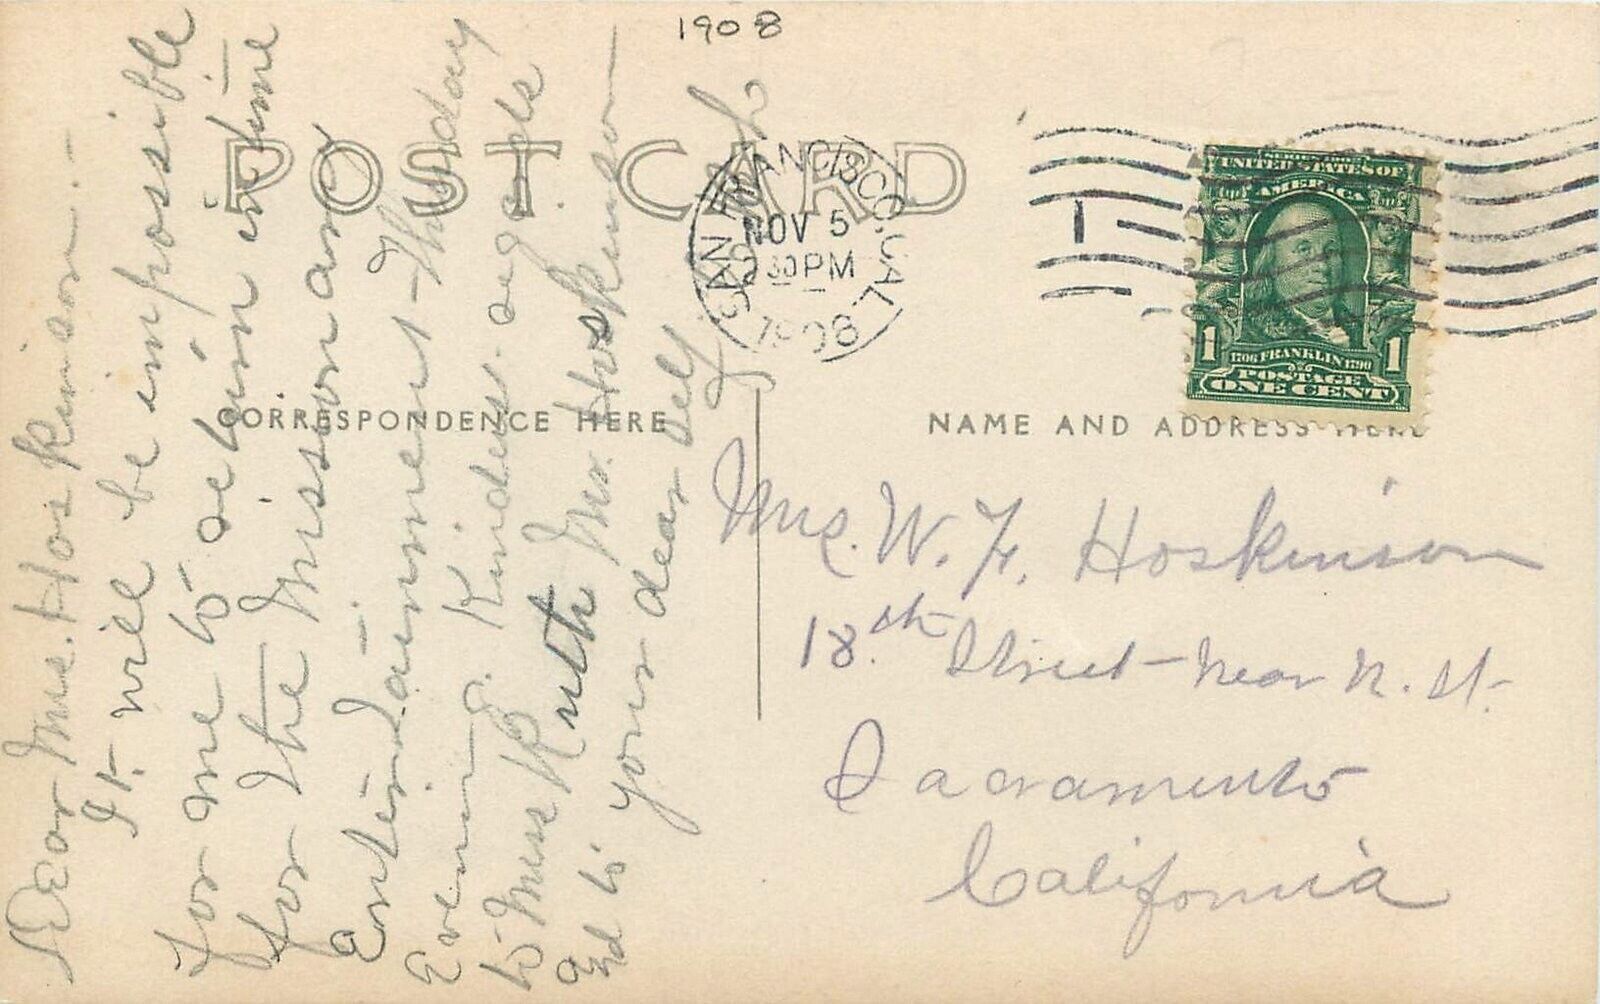 1908
POST CARD
SAN FRANCISCO, CAL.
NOV 5
30 PM
1908
1
UNITED STATES OF
AMERICA
1 1
1706 FRANKLIN 1790
POSTAGE
ONE CENT
CORRESPONDENCE HERE
NAME AND ADDRESS HERE
Dear Mrs. Hoskinson.-
It will be impossible
for me to return in time
for the Missionary
Entertainment - Thursday
Evening. Kindest
to Miss Ruth Mr. Hoskinson
and to your dear self.
Mrs. W. F. Hoskinson
18th Street - near N. St.
Sacramento
California